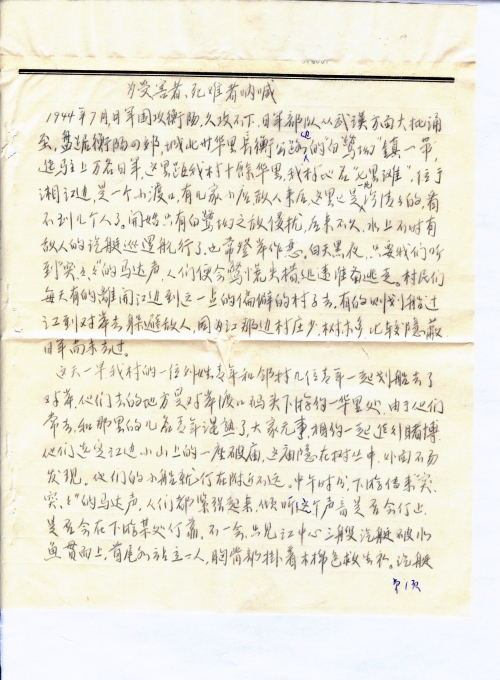 为受害者、死难者呐喊
1944年7月,日军围攻衡阳,久攻不下,日军部队从武汉方向大批涌
至,盘踞衡阳四郊,城北廿华里长衡公路边的"白鹭坳"镇一带,
驻上万名日军,这里距我村十余华里,我村心在"七里滩",位于
湘江边,是一个小渡口,有几家小店敌人来后,这里是冷清清的,看
不到几个人了。开始只有白鹭坳之敌侵扰,后来不久,水上不时有
敌人的汽艇巡逻航行了,也常登岸作恶。白天黑夜,只要我们听
到"突、突"的马达声,人们便会惊慌失措,逃难奔逃走。村民们
每天有的离开江边到远一点的偏僻的村子去,有的则划船过
江到对岸去躲避敌人,因为江那边村庄少,树木多,比较隐蔽
日军尚未去过。
这天一早我村的一位刘姓青年和邻村几位青年一起划船去了
对岸,他们去的地方是对岸渡口码头下游约一华里处,由于他们
常去,和那里的几名青年混熟了,大家无事,相约一起进行赌博,
他们选定江边小山上的一座破庙,这庙隐在树丛中,外面不易
发现,他们的小船就停在附近不远。中午时分,下游传来"突、
突、突"的马达声,人们都紧张起来,倾听这个声音是否会停止,
是否会在下游某处停靠,不一会,只见江中心三艘汽艇破水
鱼贯而上,首尾和站立一人,胸背都挂着木棉色救生衣。汽艇
第1页